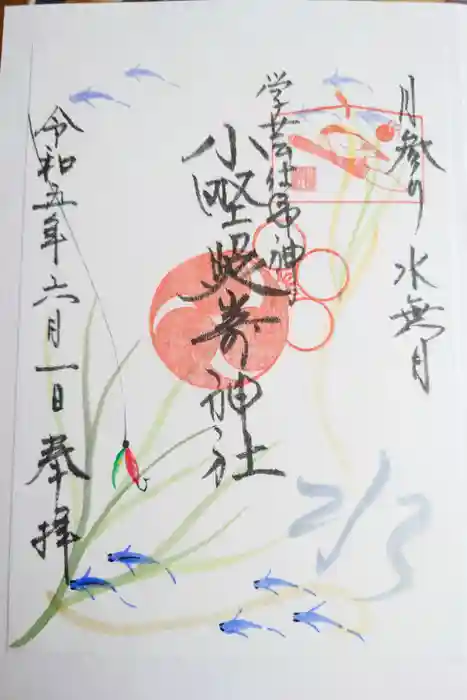 月参り 水無月
学芸仕事神
小野照嵜神社
令和五年六月一日 奉拝
水